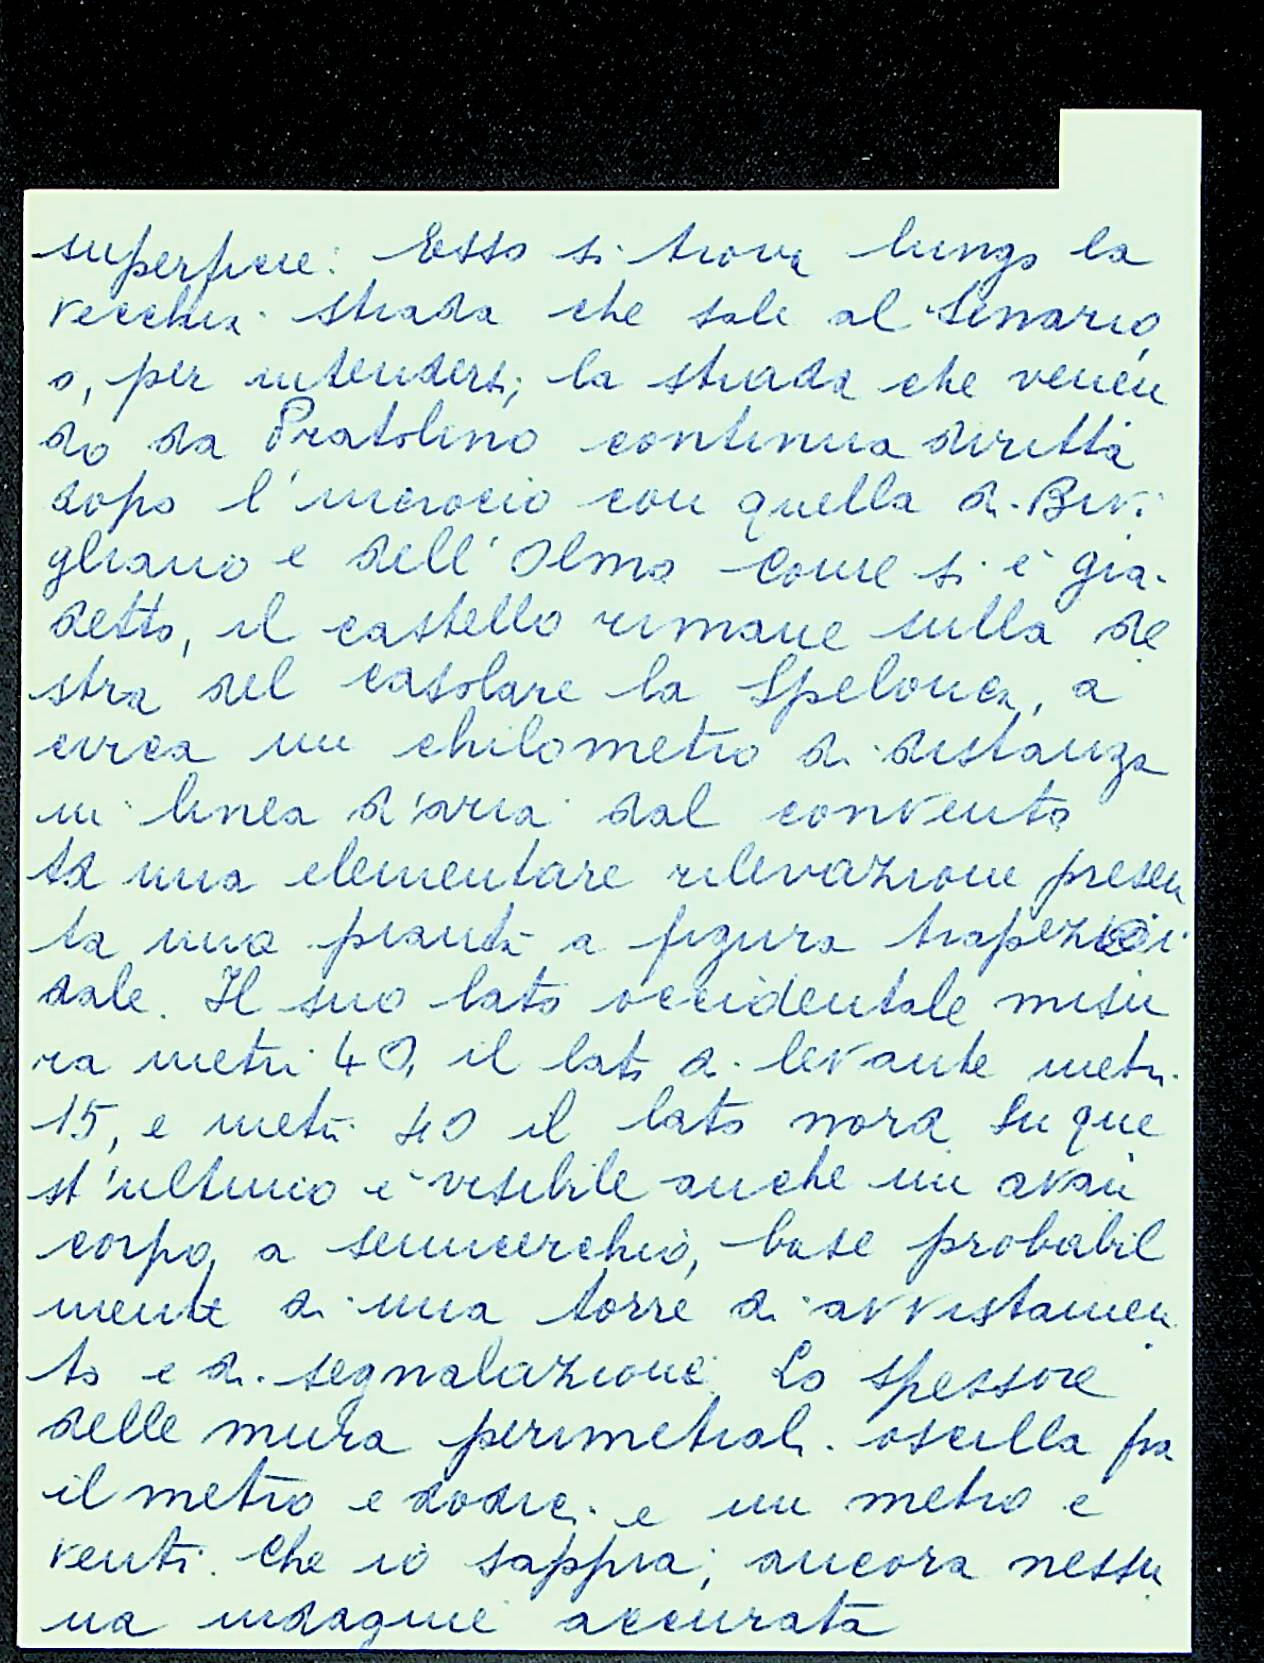 superficie. Esso si trova lungo la
vecchia strada che sale al Senario,
o, per intendersi, la strada che venen
do da Pratolino continua diritta
dopo l'incrocio con quella di Bivi
gliano e dell'Olmo Come si è già
detto, il castello rimane sulla de
stra del casolare la Spelonca, a
circa un chilometro di distanza
in linea d'aria dal convento
Ad una elementare rilevazione presen
ta una pianta a figura trapezoi
dale. Il suo lato occidentale misu
ra metri 40, il lato di levante metri
15, e metri 40 il lato nord. Su que
st'ultimo è visibile anche un avan
corpo, a semicerchio, base probabil
mente di una torre di avvistamen
to e di segnalazione. Lo spessore
delle mura perimetrali oscilla fra
il metro e dodici e un metro e
venti. Che io sappia, ancora nessu
na indagine accurata